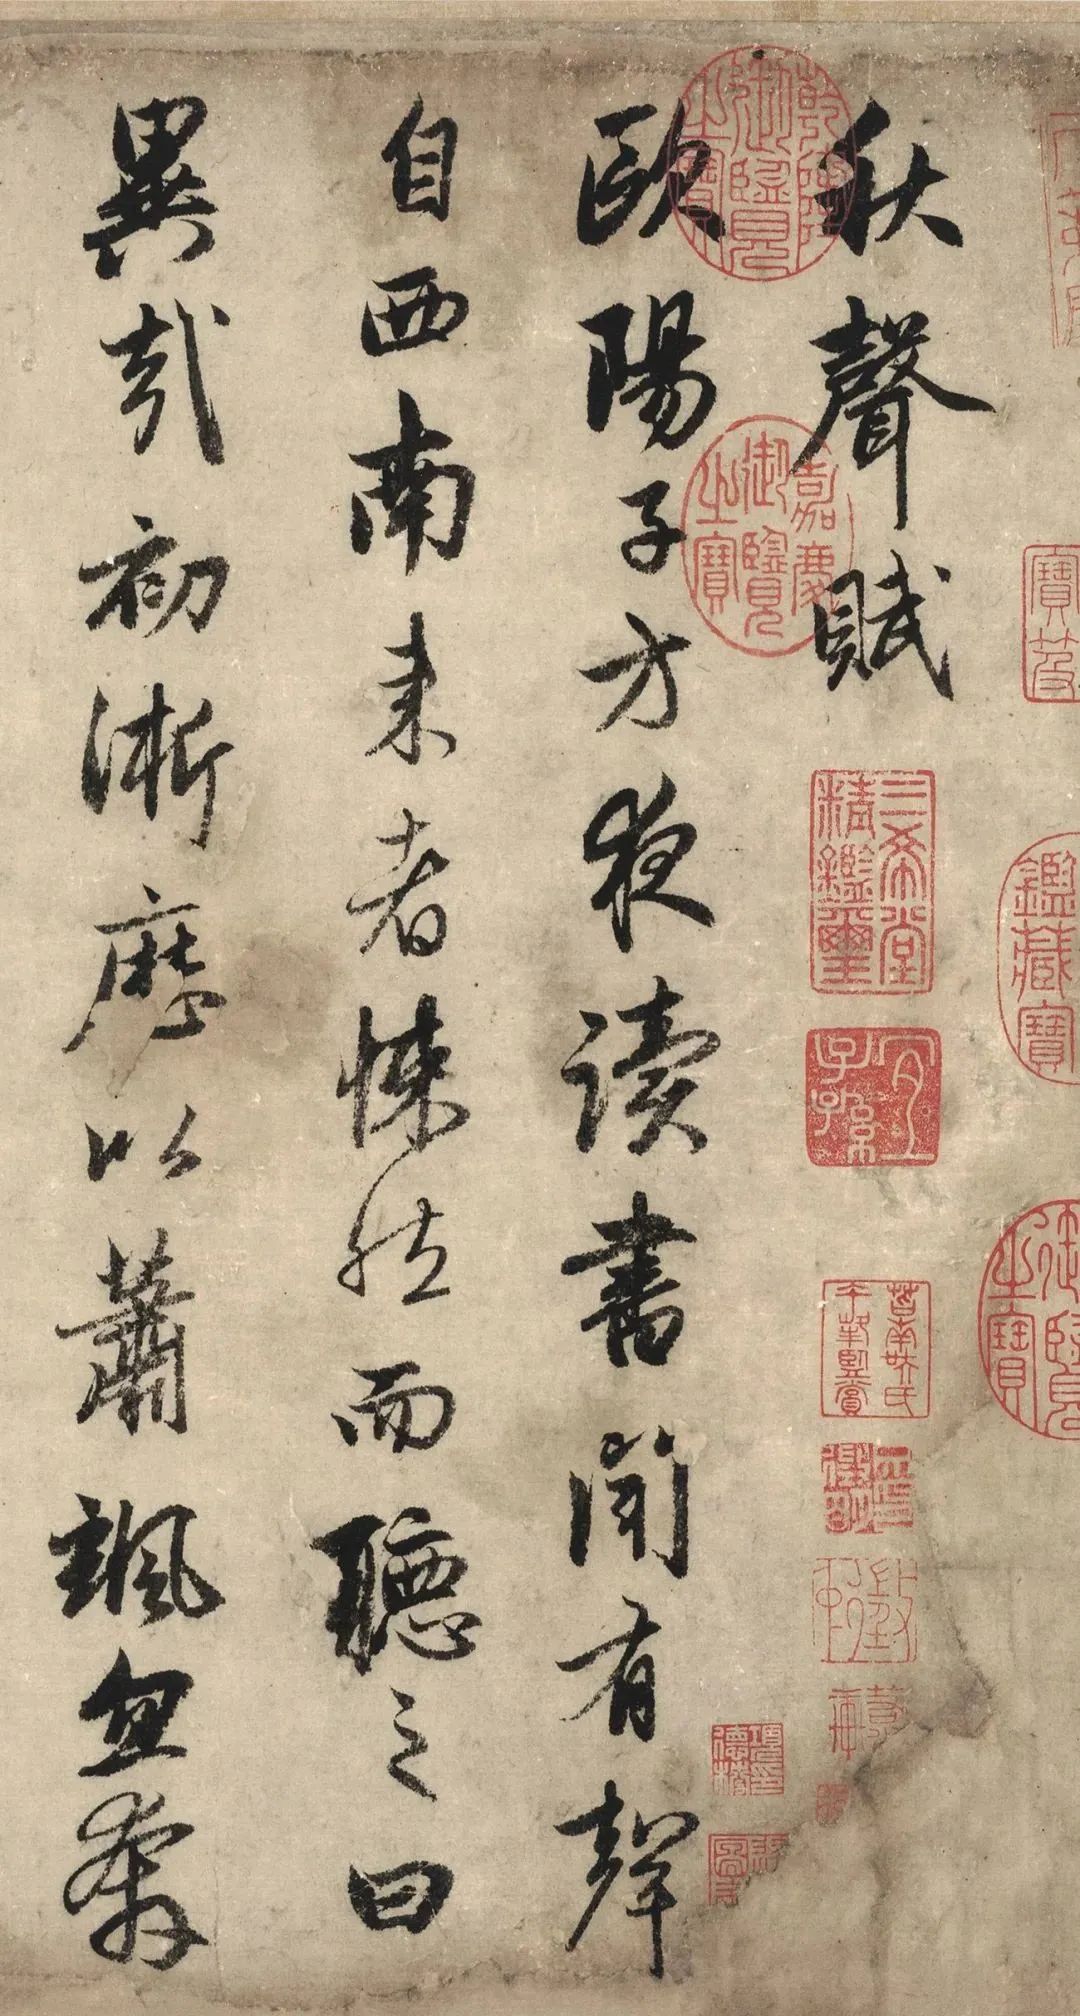 秋聲賦
歐陽子方夜讀書聞有聲
自西南来者悚然而聽之曰
異哉初淅歷以蕭颯忽奔
乾隆御覽之寶
嘉慶御覽之寶
三希堂精鑑璽
宜子孫
寶笈
鑑藏寶
御覽之寶